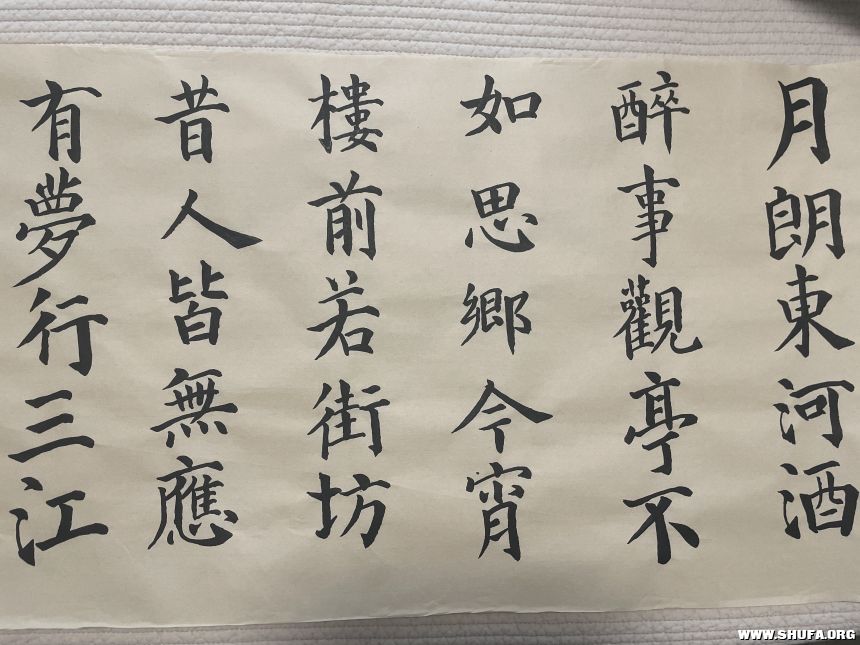 月朗東河酒
醉事觀亭不
如思鄉今宵
樓前若街坊
昔人皆無應
有夢行三江
WWW.SHUFA.ORG